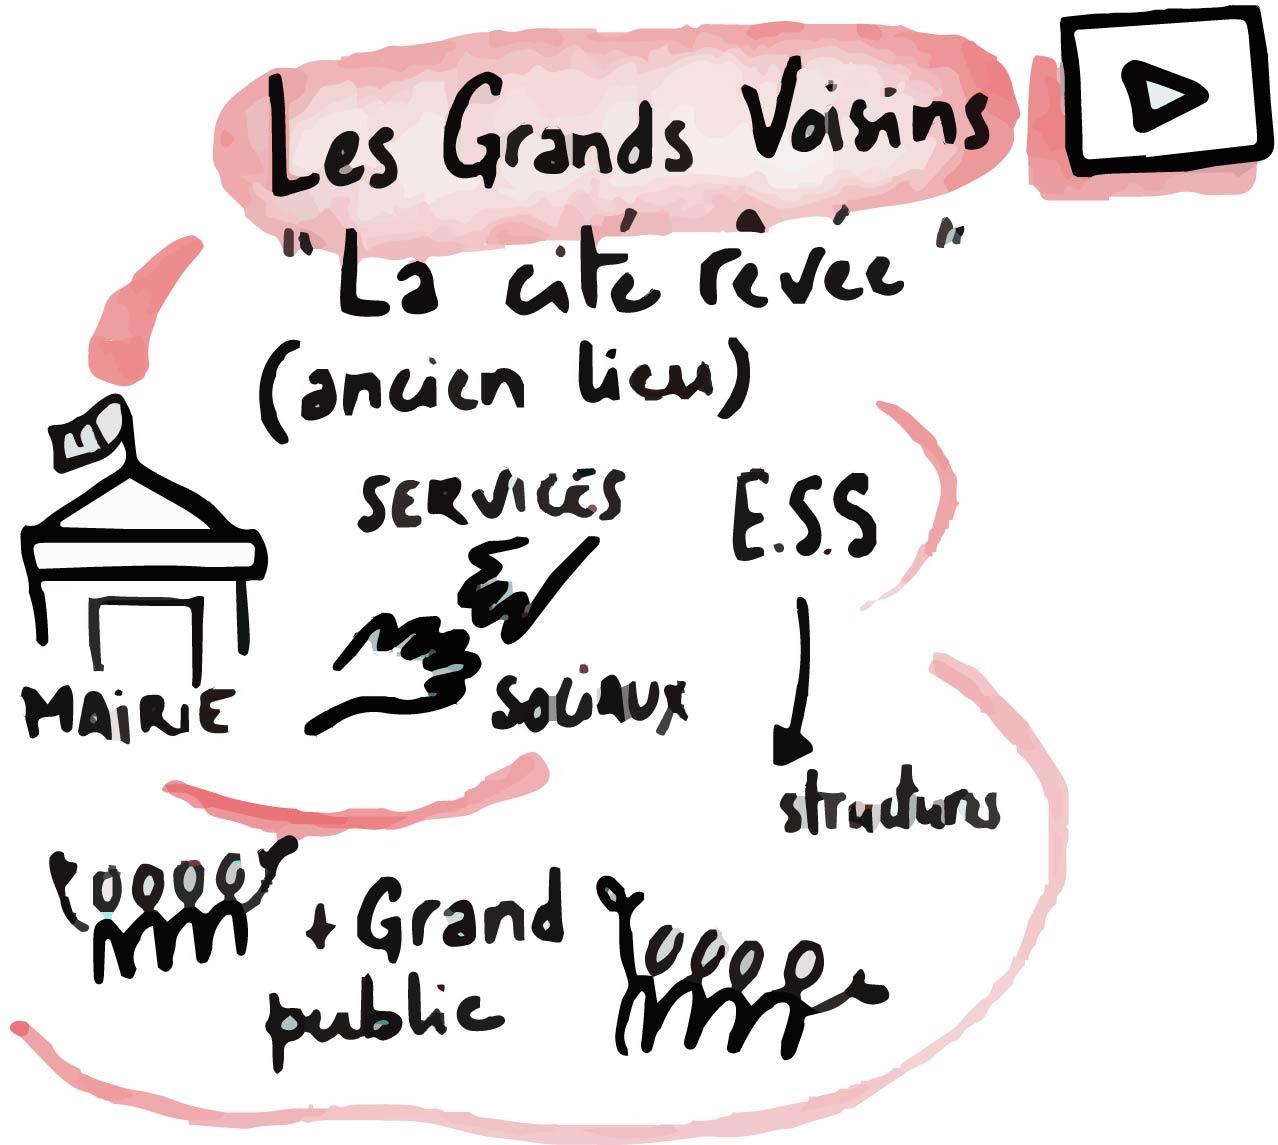 Les Grands Voisins
"La cité rêvée"
(ancien lieu)
SERVICES
E.S.S
MAiRiE
SOCiAUX
structures
+ Grand
public